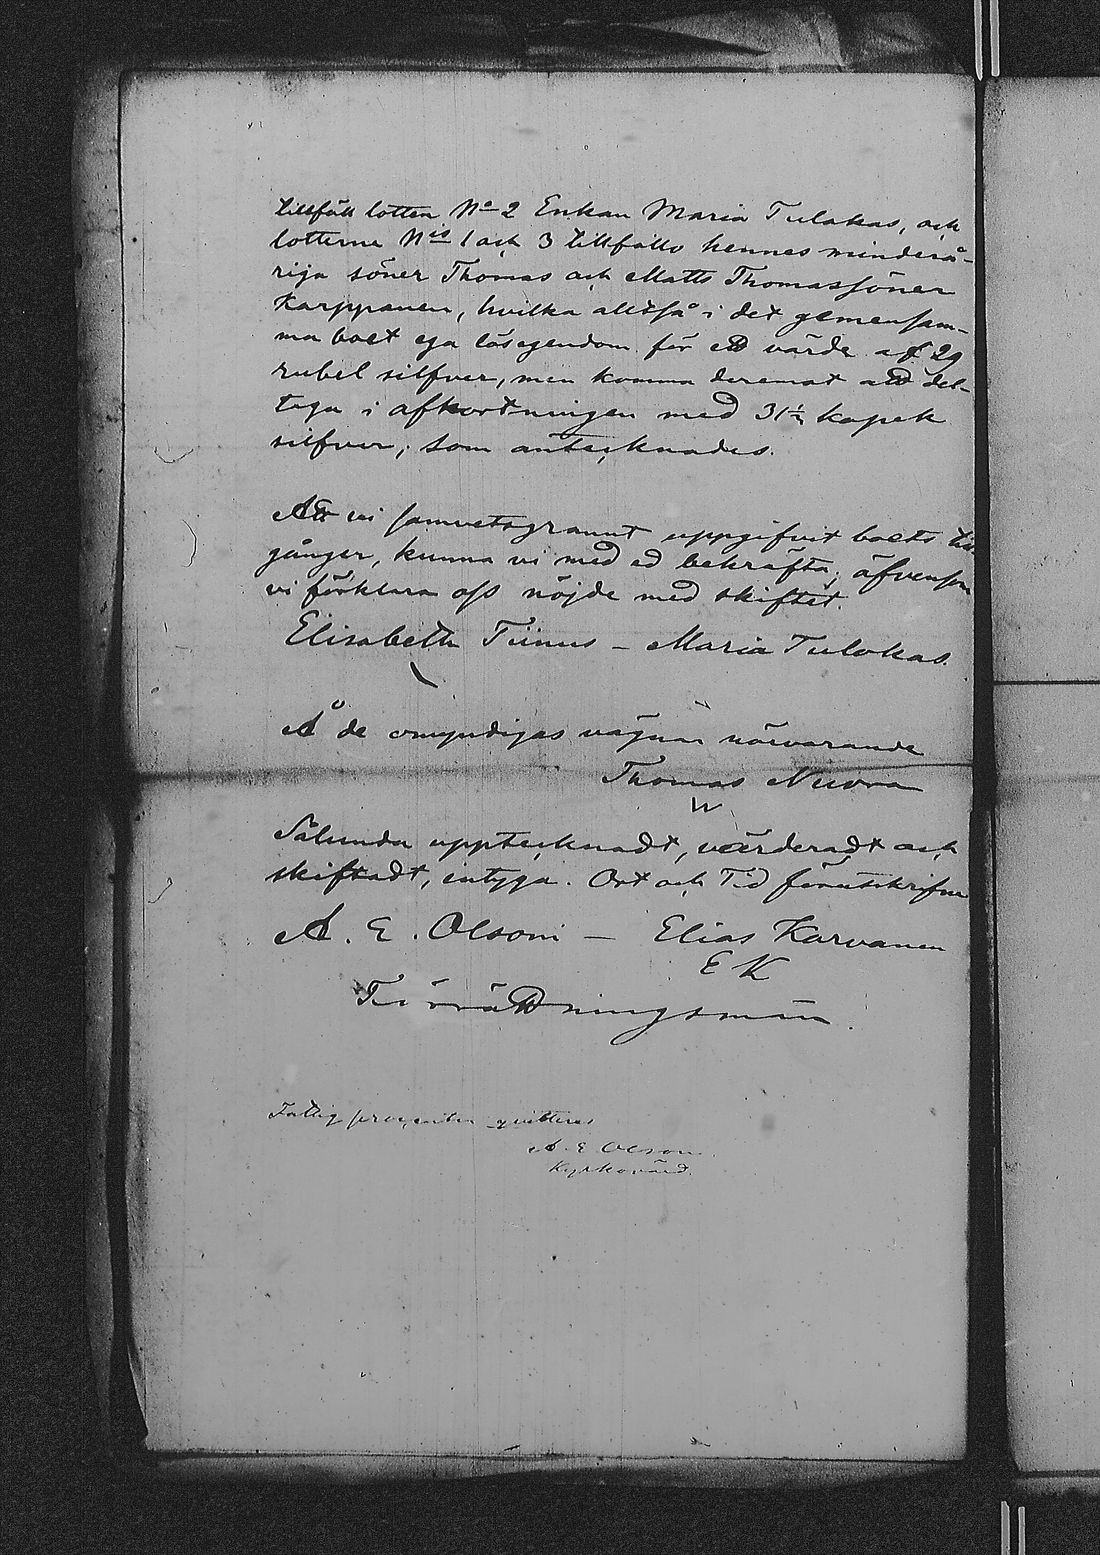 tillföll lotten No 2 Enkan Maria Tulokas, och
lotterne Nis 1 och 3 tillföllo hennes minderå-
riga söner Thomas och Matts Thomassöner
Karppanen, hvilka alltså i det gemensam-
ma boet ega lösegendom för ett värde af 29
rubel silfver, men komma deremot att del-
taga i afkortningen med 31½ kopek
silfver; som antecknades.
Att vi samvetsgrannt uppgifvit boets till
gånger, kunna vi med ed bekräfta, äfvensom
vi förklara oss nöjde med skiftet.
Elisabeth Tiinus – Maria Tulokas.
Å de omyndigas vägnar närvarande
Thomas Nuora
Sålunda upptecknadt, värderadt och
skiftadt, intyga. Ort och Tid förutskrifne
A. E. Olsoni – Elias Karvanen
E K
Förrättningsmän.
Fattigprocenten quitteras
A. E Olsoni
Kyrkovärd.